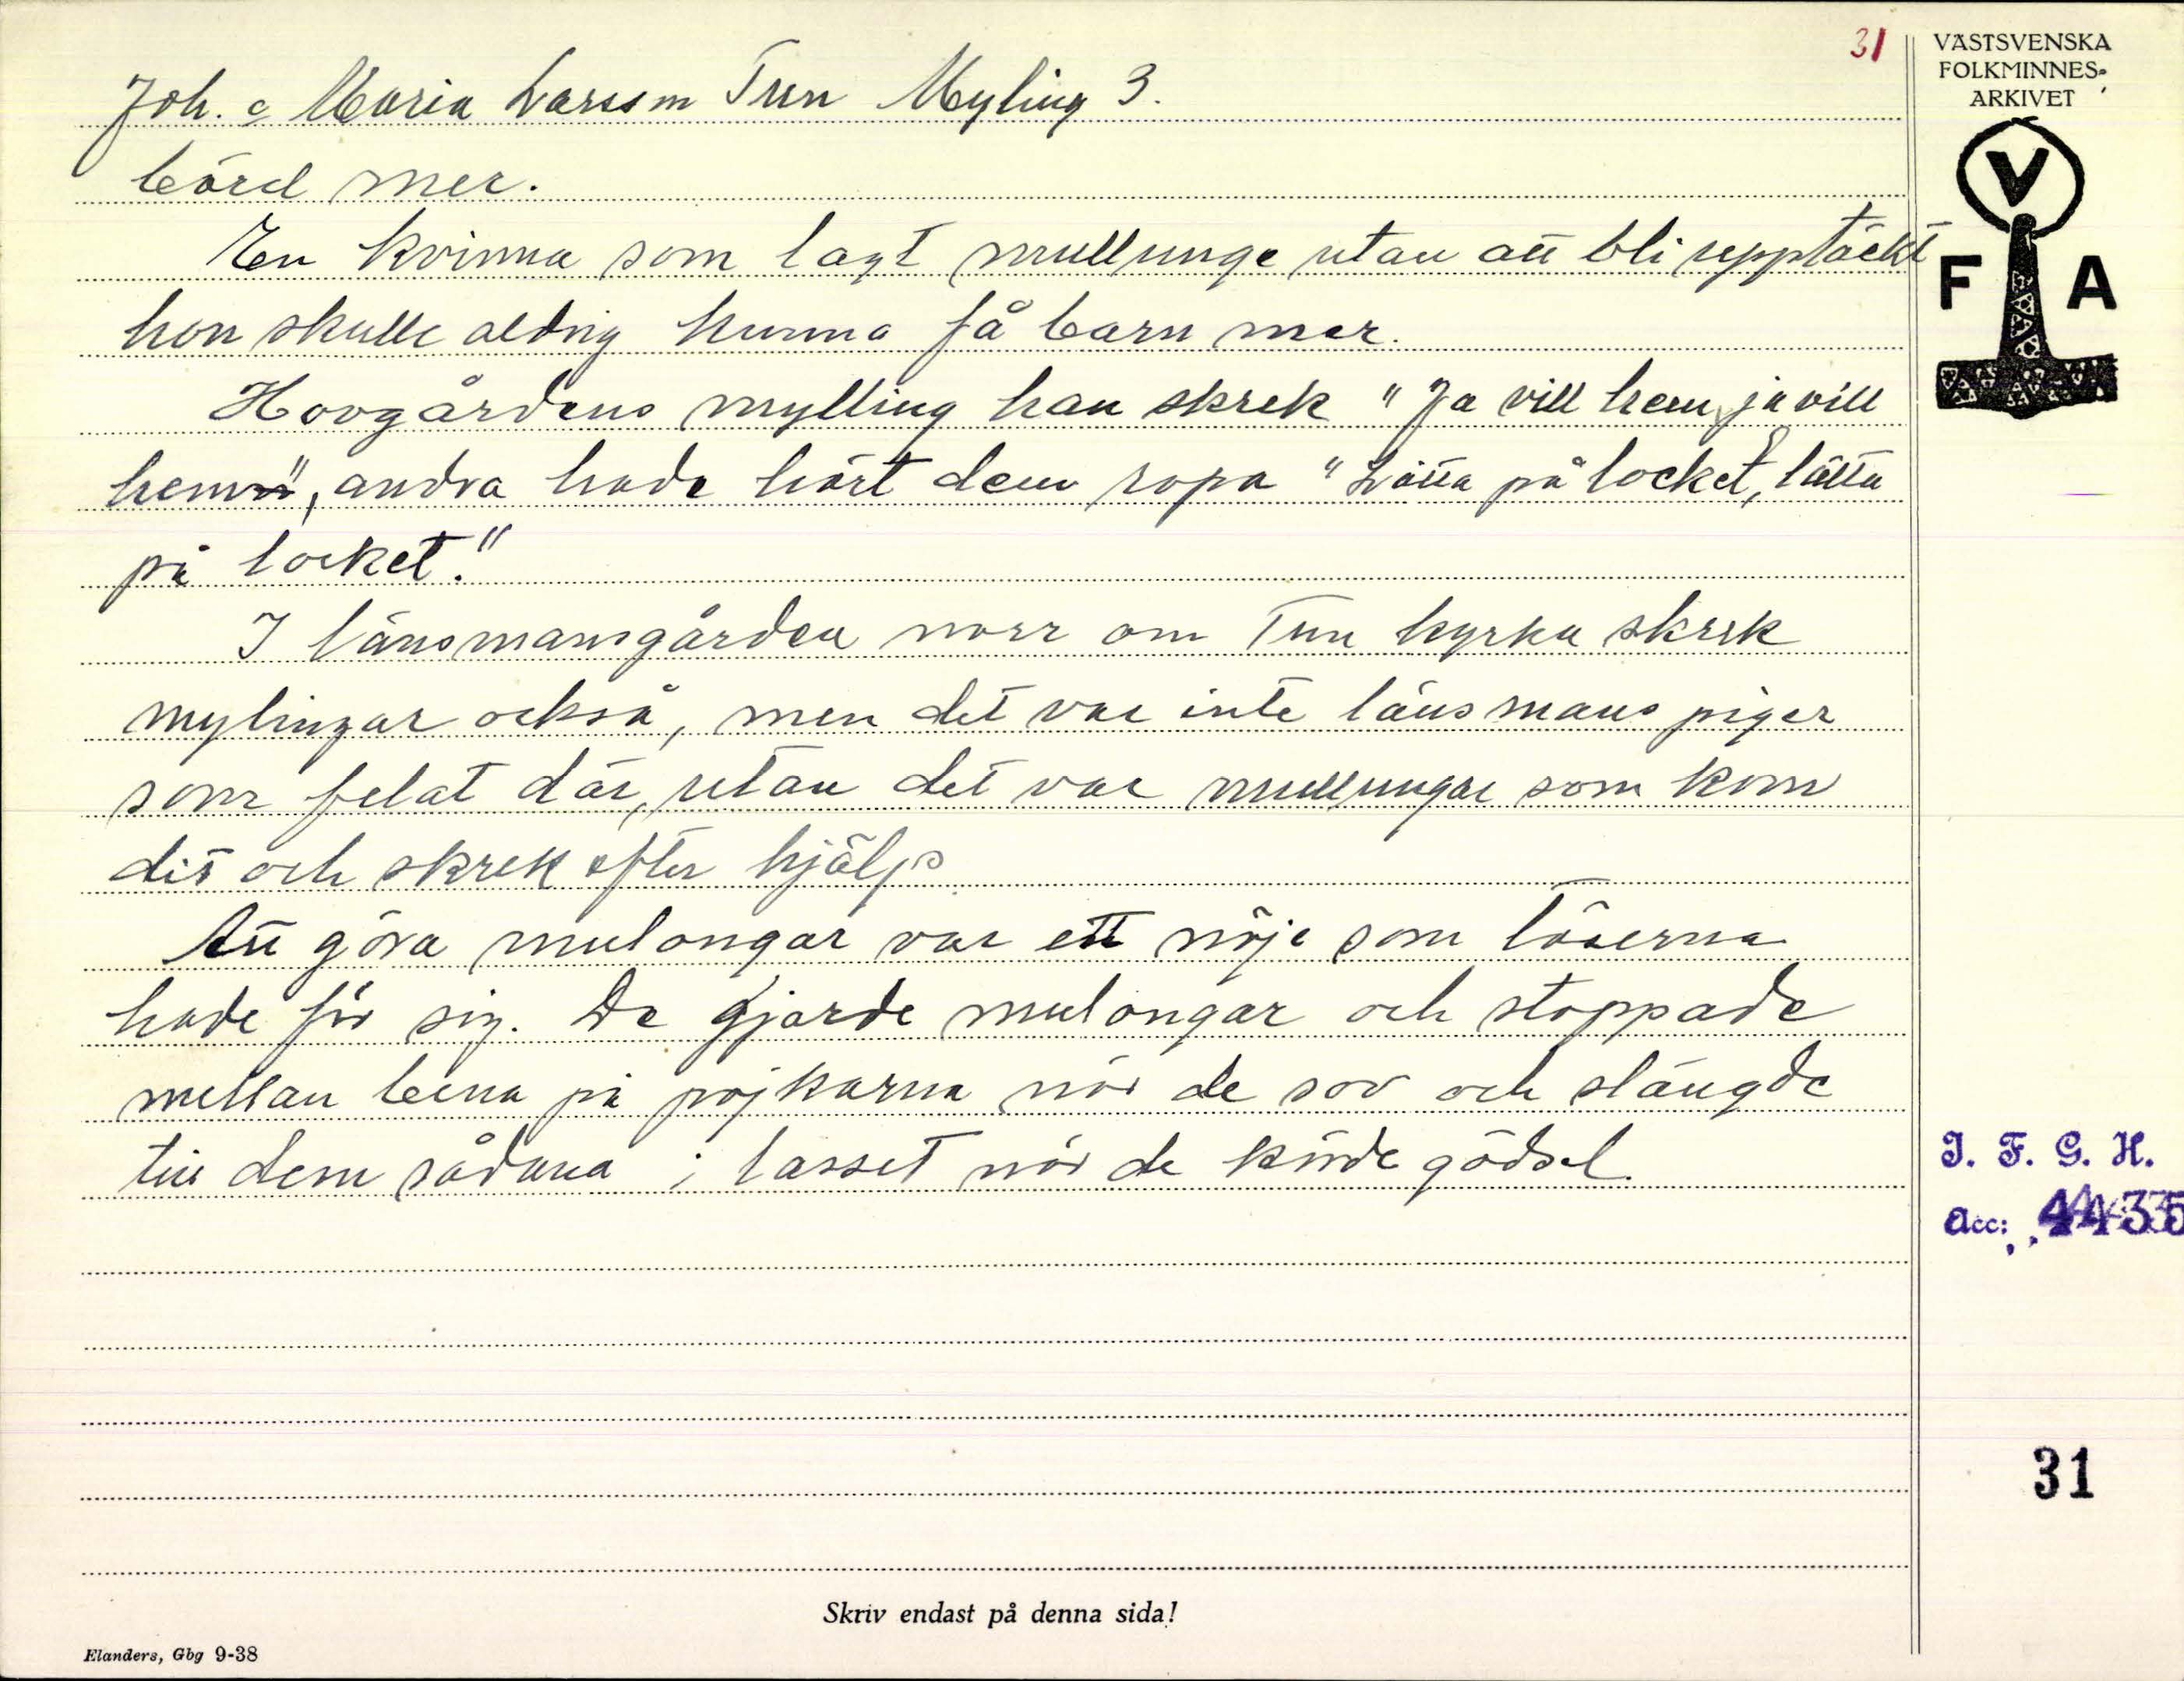 31
VÄSTSVENSKA
FOLKMINNES-
ARKIVET
V
F A
Joh. o Maria Larsson Tun Myling 3.
börd mer.
En kvinna som lagt mullunge utan att bli upptäckt
hon skulle aldrig kunna få barn mer.
Hovgårdens mylling han skrek "Ja vill hem, ja vill
hem", andra hade hört dem ropa "Lätta på locket, lätta
på locket."
I länsmansgården norr om Tun kyrka skrek
mylingar också, men det var inte länsmans pigor
som felat där, utan det var mullungar som kom
dit och skrek efter hjälp
Att göra mulongar var ett nöje som töserna
hade för sig. De gjorde mulongar och stoppade
mellan bena på pojkarna när de sov och slängde
till dem sådana i lasset när de körde gödsel.
I. F. G. H.
Acc: 4435
31
Skriv endast på denna sida!
Elanders, Gbg 9-38